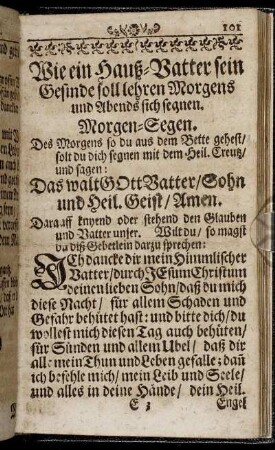 101
Wie ein Hauß-Vatter sein
Gesinde soll lehren Morgens
und Abends sich segnen.
Morgen-Segen.
Des Morgens so du aus dem Bette gehest/
solt du dich segnen mit dem Heil. Creutz/
und sagen:
Das walt GOtt Vatter/ Sohn
und Heil. Geist/ Amen.
Darauff knyend oder stehend den Glauben
und Vatter unser. Wilt du/ so magst
du diß Gebetlein darzu sprechen:
ICh dancke dir mein Himmlischer
Vatter/ durch JEsum Christum
deinen lieben Sohn/ daß du mich
diese Nacht/ für allem Schaden und
Gefahr behütet hast: und bitte dich/ du
wollest mich diesen Tag auch behüten/
für Sünden und allem Ubel/ daß dir
alle mein Thun und Leben gefalle; dañ
ich befehle mich/ mein Leib und Seele/
und alles in deine Hände/ dein Heil.
E 3 Engel